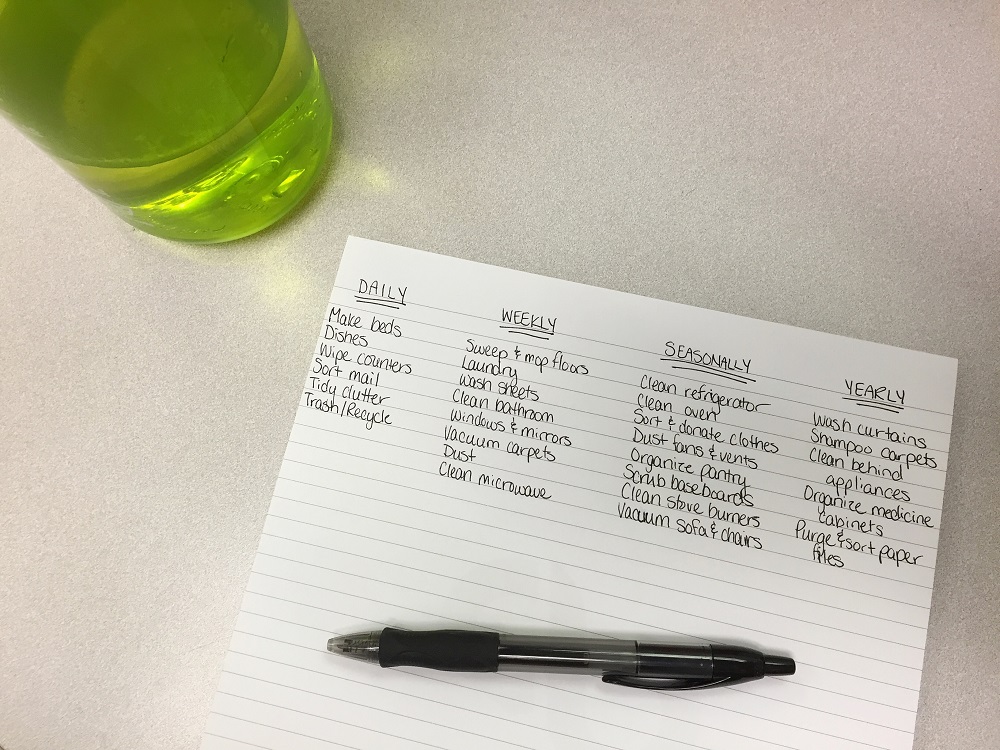 DAILY
Make beds
Dishes
Wipe counters
Sort mail
Tidy clutter
Trash/Recycle
WEEKLY
Sweep & mop floors
Laundry
Wash sheets
Clean bathroom
Windows & mirrors
Vacuum carpets
Dust
Clean microwave
SEASONALLY
Clean refrigerator
Clean oven
Sort & donate clothes
Dust fans & vents
Organize pantry
Scrub baseboards
Clean stove burners
Vacuum sofa & chairs
YEARLY
Wash curtains
Shampoo carpets
Clean behind
appliances
Organize medicine
cabinets
Purge & sort paper
files